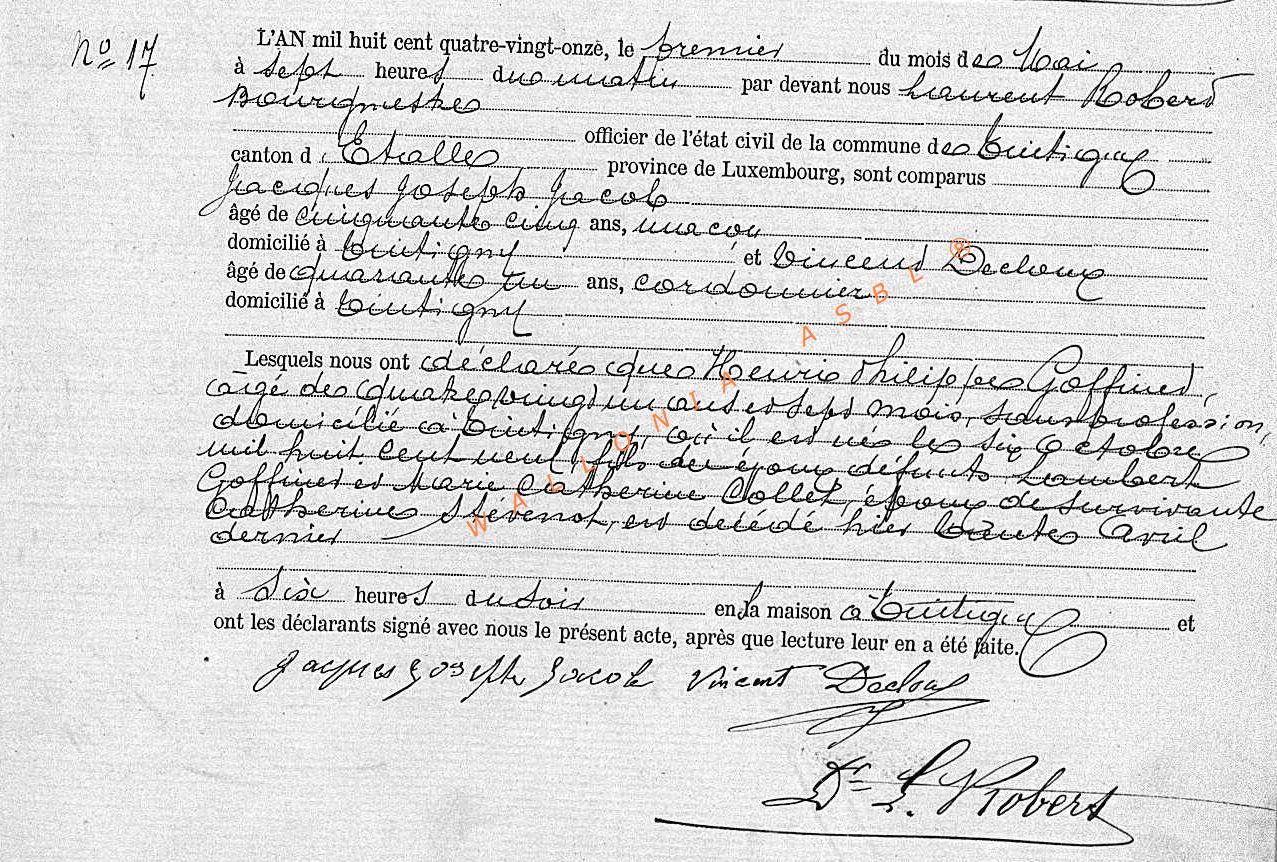 No 17
L'AN mil huit cent quatre-vingt-onze, le premier du mois de Mai
à sept heures du matin par devant nous Laurent Robert
Bourgmestre
officier de l'état civil de la commune de Tintigny
canton d'Etalle province de Luxembourg, sont comparus
Jacques Joseph Jacob
âgé de cinquante cinq ans, maçon
domicilié à Tintigny et Vincent Decloux
âgé de quarante un ans, cordonnier
domicilié à Tintigny
Lesquels nous ont déclaré que Henri Philippe Goffinet
agé de quatre vingt un ans et sept mois, sans profession,
domicilié à Tintigny, où il est né le six Octobre
mil huit cent neuf, fils des époux défunts Lambert
Goffinet et Marie Catherine Collet, époux de survivante
Catherine Stevenot, est décédé hier trente avril
dernier
à six heures du soir en la maison à Tintigny et
ont les déclarants signé avec nous le présent acte, après que lecture leur en a été faite.
Jacques Joseph Jacob Vincent Decloux
Dr L. Robert
WALLONIA ASBL ®